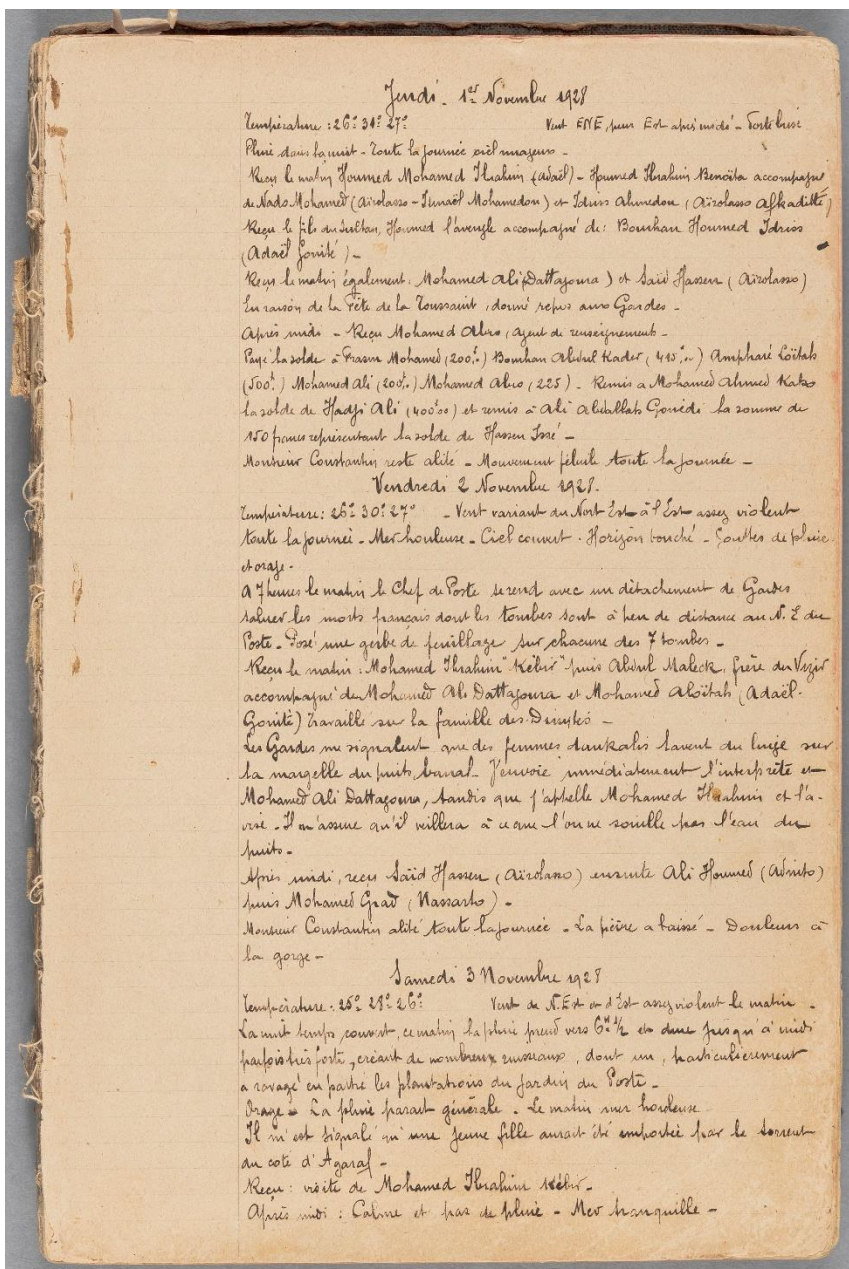 Jeudi - 1er Novembre 1928
Température : 26° 31° 27° Vent ENE, puis Est après midi - Forte brise
Pluie dans la nuit - Toute la journée ciel nuageux -
Reçu le matin Houmed Mohamed Ibrahim (Adaël) - Houmed Ibrahim Benoïta accompagné
de Nado Mohamed (Aïrolasso - Ismaël Mohamedou) et Idriss Ahmedou (Aïrolasso Afkaditté)
Reçu le fils du Sultan, Houmed l'aveugle accompagné de : Bourhan Houmed Idriss
(Adaël Gonité) -
Reçu le matin également : Mohamed Ali (Dattagoura) et Saïd Hassen (Aïrolasso)
En raison de la Fête de la Toussaint, donné repos aux Gardes -
Après midi - Reçu Mohamed Abro, agent de renseignement -
Payé la solde à Mohamed (200f.) Bourhan Abdul Kader (415f.) Ampharé Loïtah
(500f.) Mohamed Ali (200f.) Mohamed Abro (225) - Remis à Mohamed Ahmed Kako
la solde de Hadji Ali (400f00) et remis à Ali Abdallah Gouédi la somme de
150 francs représentant la solde de Hassen Issé -
Monsieur Constantin reste alité - Mouvement fébrile toute la journée -
Vendredi 2 Novembre 1928.
Température : 26° 30° 27° - Vent variant du Nort Est à l'Est assez violent
toute la journée - Mer houleuse - Ciel couvert - Horizon bouché - Gouttes de pluie
et orage -
A 7 heures le matin le Chef de Poste se rend avec un détachement de Gardes
saluer les morts français dont les tombes sont à peu de distance au N. E du
Poste - Posé une gerbe de feuillage sur chacune des 7 tombes -
Reçu le matin : Mohamed Ibrahim "Kébir" puis Abdul Maleck, frère du Vizir
accompagné de Mohamed Ali Dattagoura et Mohamed Aloïtah (Adaël-
Gonité) Travaille sur la famille des -
Les Gardes me signalent que des femmes dankalis lavent du linge sur
la margelle du puits banal - J'envoie immédiatement l'interprète et
Mohamed Ali Dattagoura, tandis que j'appelle Mohamed Ibrahim et l'a-
vise - Il m'assure qu'il veillera à ce que l'on ne souille pas l'eau du
puits -
Après midi, reçu Saïd Hassen (Aïrolasso) ensuite Ali Houmed (Adnito)
puis Mohamed Grad (Nassarto) -
Monsieur Constantin alité toute la journée - La fièvre a baissé - Douleurs à
la gorge -
Samedi 3 Novembre 1928
Température : 25° 28° 26° Vent de N. Est et d'Est assez violent le matin -
La nuit temps couvert, ce matin la pluie prend vers 6h 1/2 et dure jusqu'à midi
parfois très forte, créant de nombreux ruisseaux, dont un, particulièrement
a ravagé en partie les plantations du jardin du Poste -
Orage - La pluie parait générale - Le matin mer houleuse
Il m'est signalé qu'une jeune fille aurait été emportée par le torrent
du coté d'Agaraf -
Reçu : visite de Mohamed Ibrahim Kébir -
Après midi : Calme et pas de pluie - Mer tranquille -